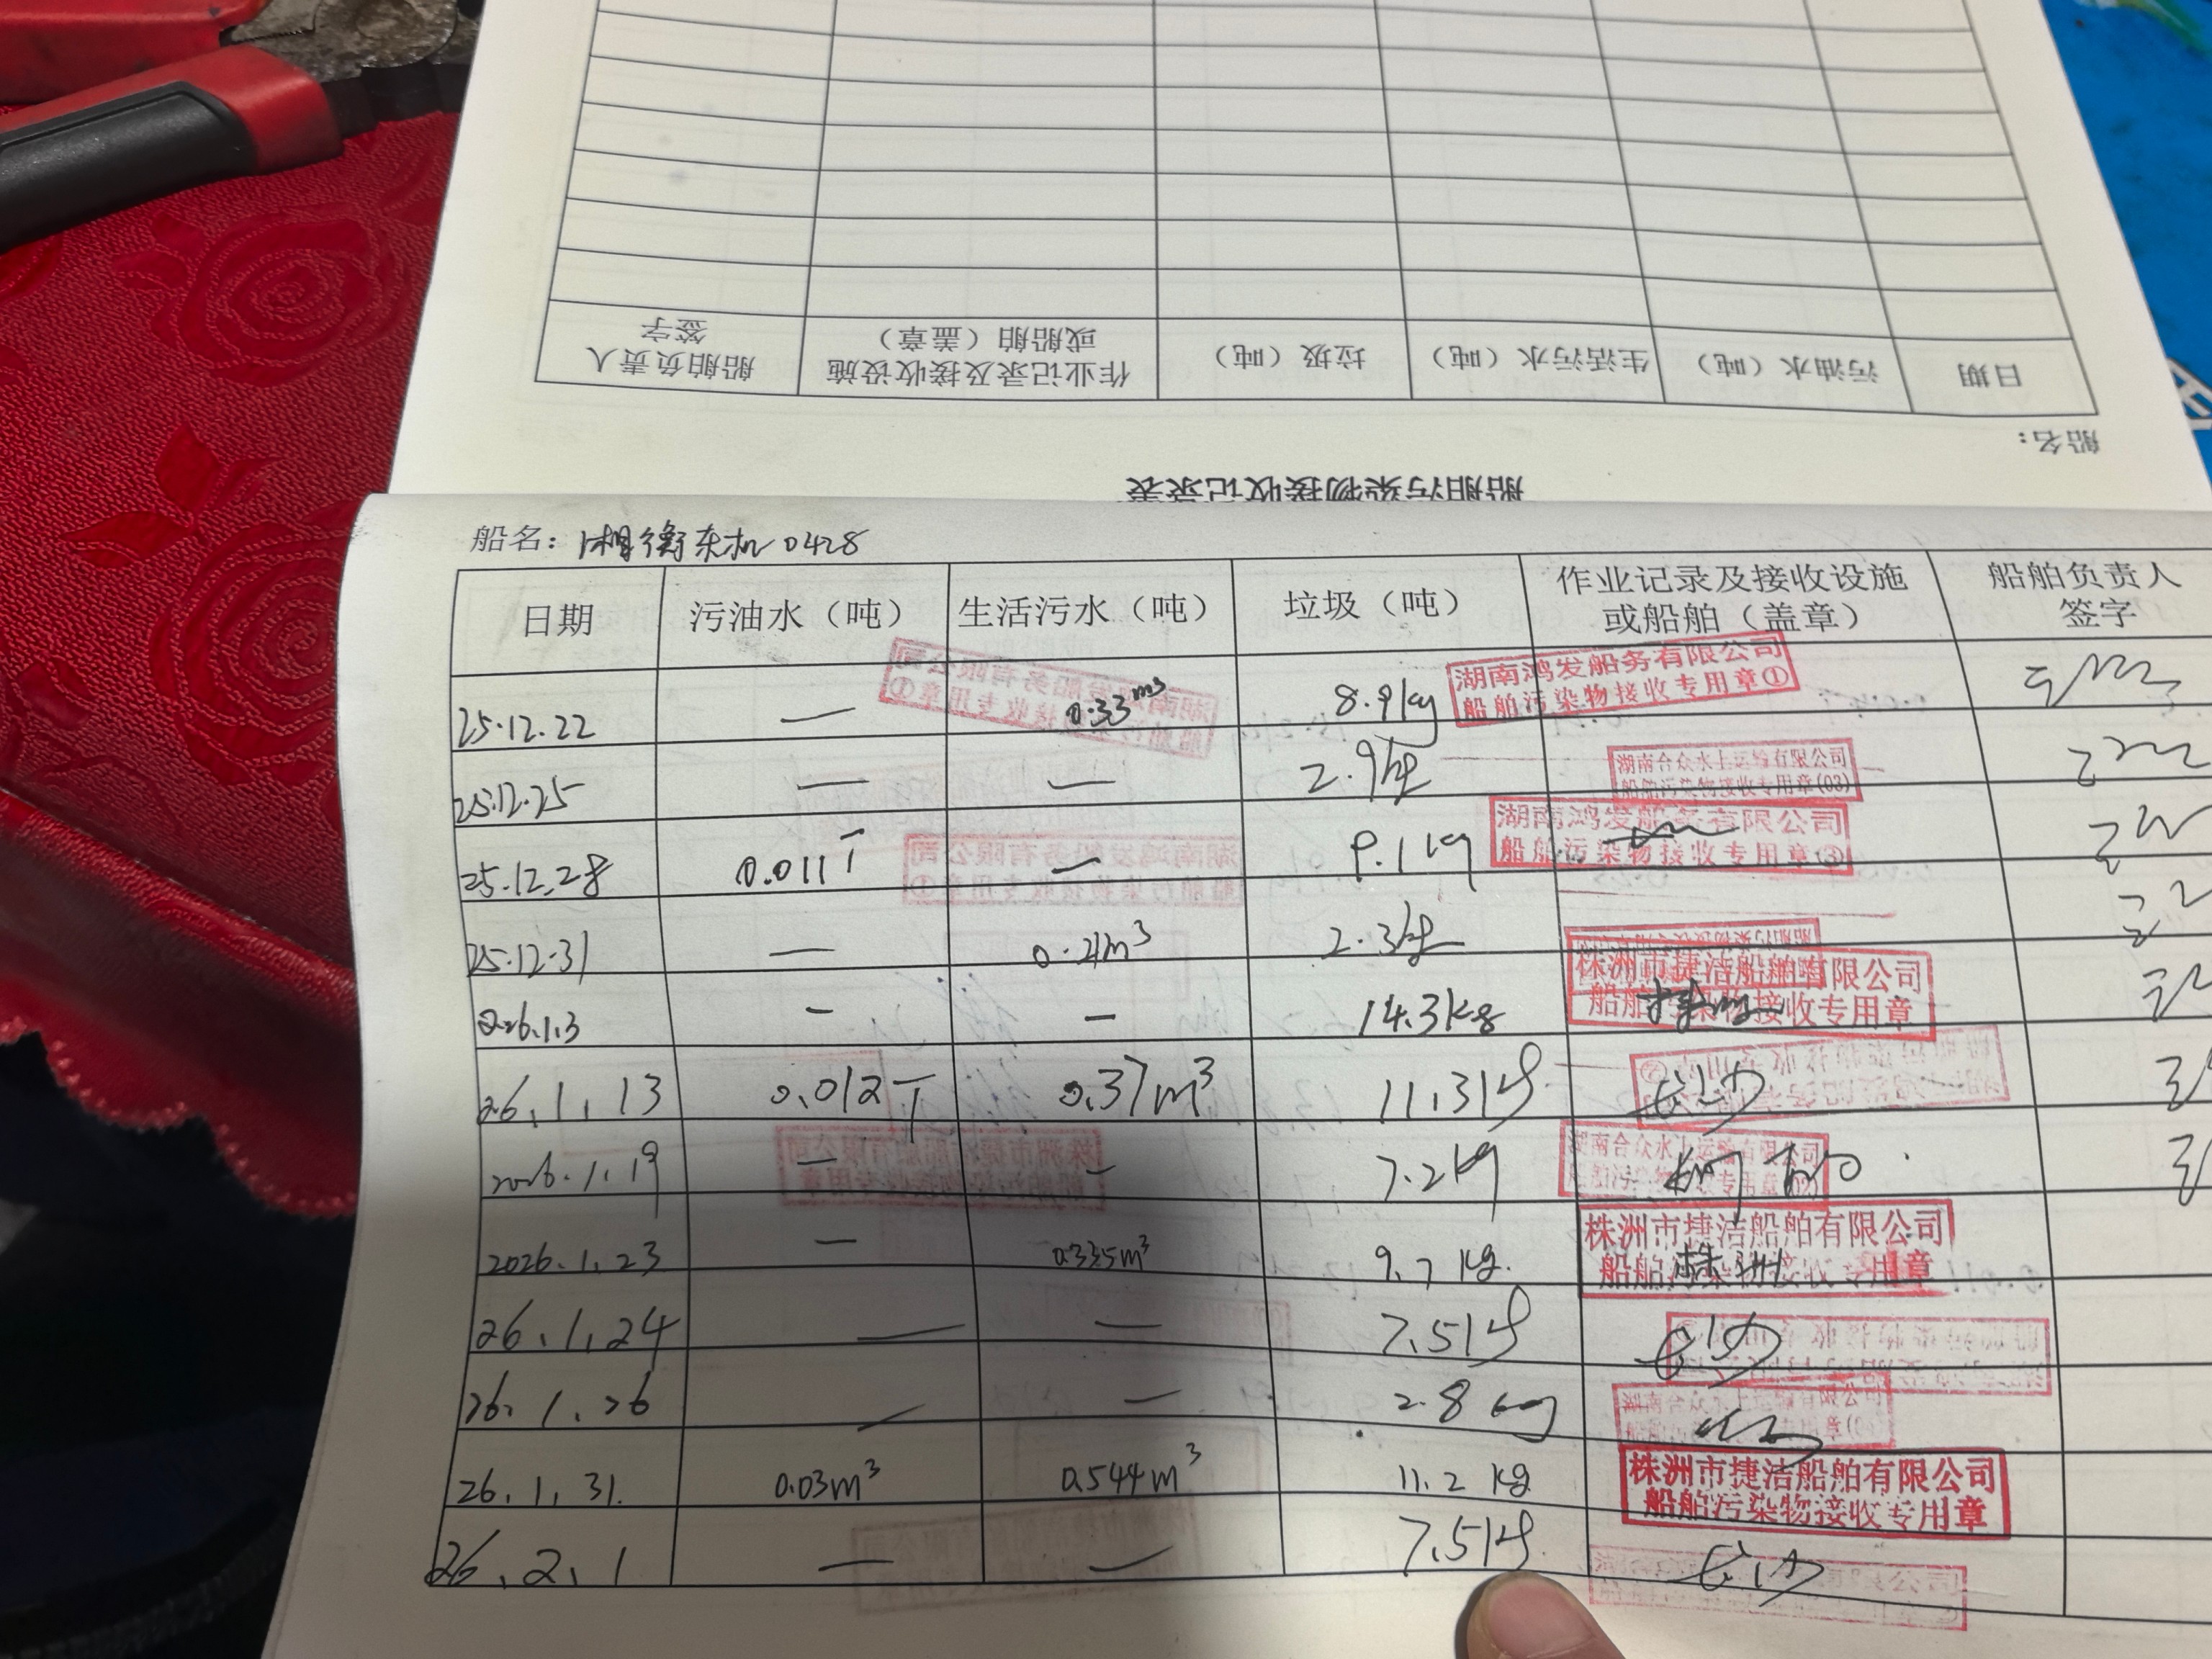 船舶负责人
签字
作业记录及接收设施
或船舶（盖章）
垃圾（吨）
生活污水（吨）
污油水（吨）
日期
船名：
船舶污染物接收记录表
船名：湘衡东机0428
日期 污油水（吨） 生活污水（吨） 垃圾（吨） 作业记录及接收设施 船舶负责人
或船舶（盖章） 签字
25.12.22 — 0.33m³ 8.9kg 湖南鸿发船务有限公司
船舶污染物接收专用章①
25.12.25 — — 2.9kg 湖南合众水上运输有限公司
船舶污染物接收专用章(03)
25.12.28 0.011T — 9.1kg 湖南鸿发船务有限公司
船舶污染物接收专用章(3)
25.12.31 — 0.21m³ 2.3kg
船舶污染物接收专用章
2026.1.3 — — 14.3kg 株洲市捷洁船舶有限公司
船舶污染物接收专用章
26.1.13 0.012T 0.37m³ 11.3kg 长沙
2026.1.19 — — 7.2kg 湖南合众水上运输有限公司
2026.1.23 — 0.335m³ 9.7kg. 株洲市捷洁船舶有限公司
船舶污染物接收专用章
株洲
26.1.24 — — 7.5kg 长沙
26.1.26 — — 2.8kg 湖南合众水上运输有限公司
26.1.31. 0.03m³ 0.544m³ 11.2kg 株洲市捷洁船舶有限公司
船舶污染物接收专用章
26.2.1 — — 7.5kg. 长沙